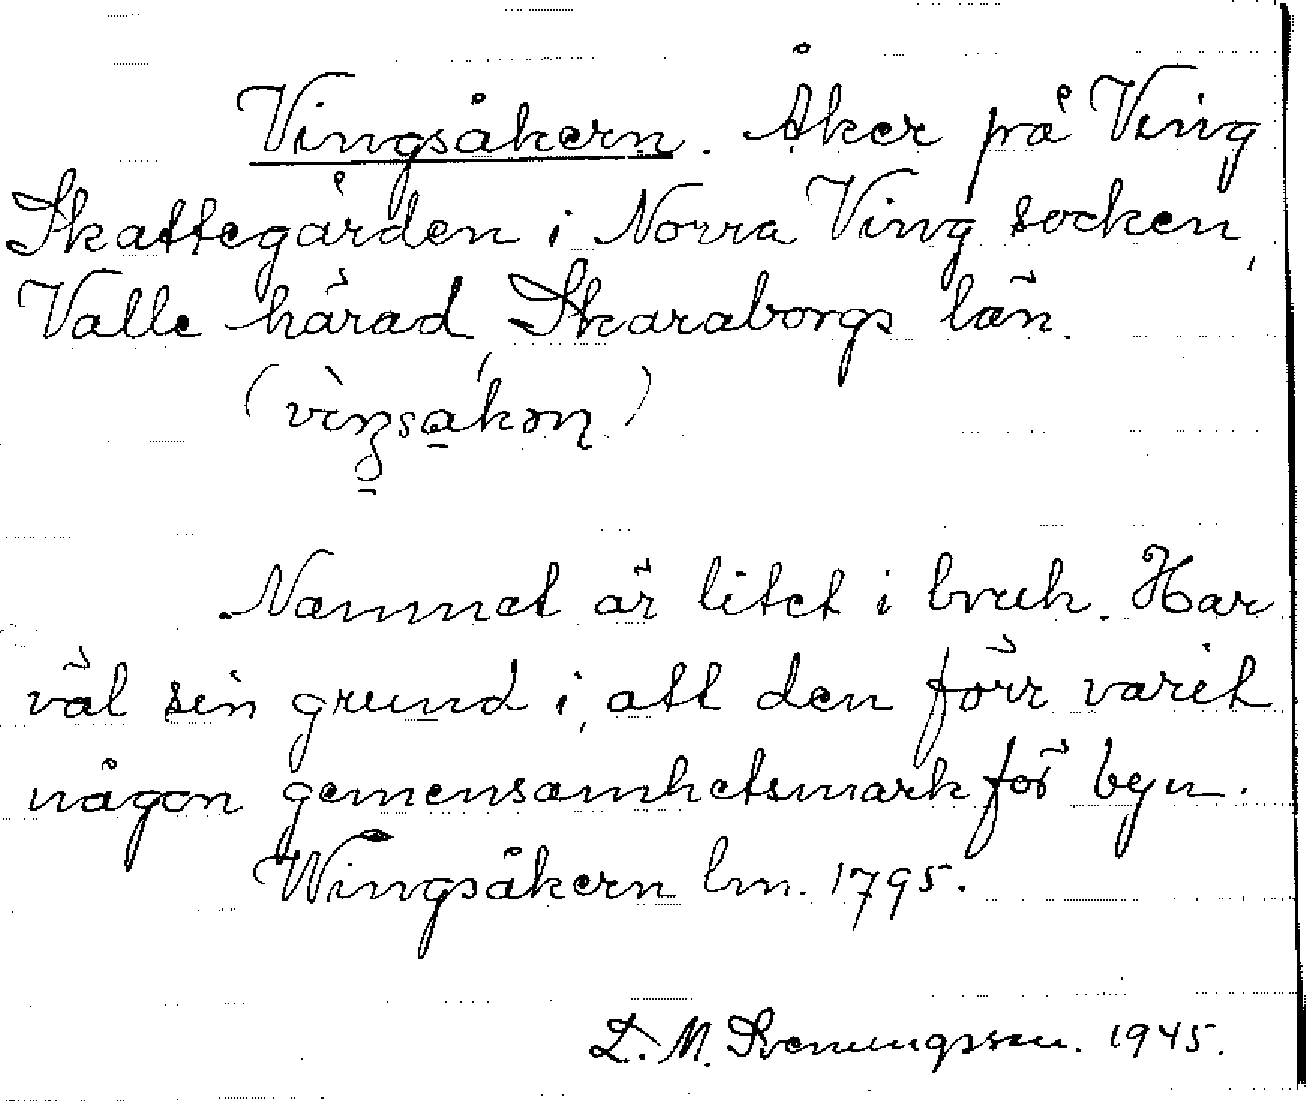 Vingsåkern. Åker på Ving
Skattegården i Norra Ving socken,
Valle härad, Skaraborgs län.
Namnet är litet i bruk. Har
väl sin grund i, att den förr varit
någon gemensamhetsmark för byn.
Wingsåkern lm. 1795.
D. M. Svenungsson. 1945.